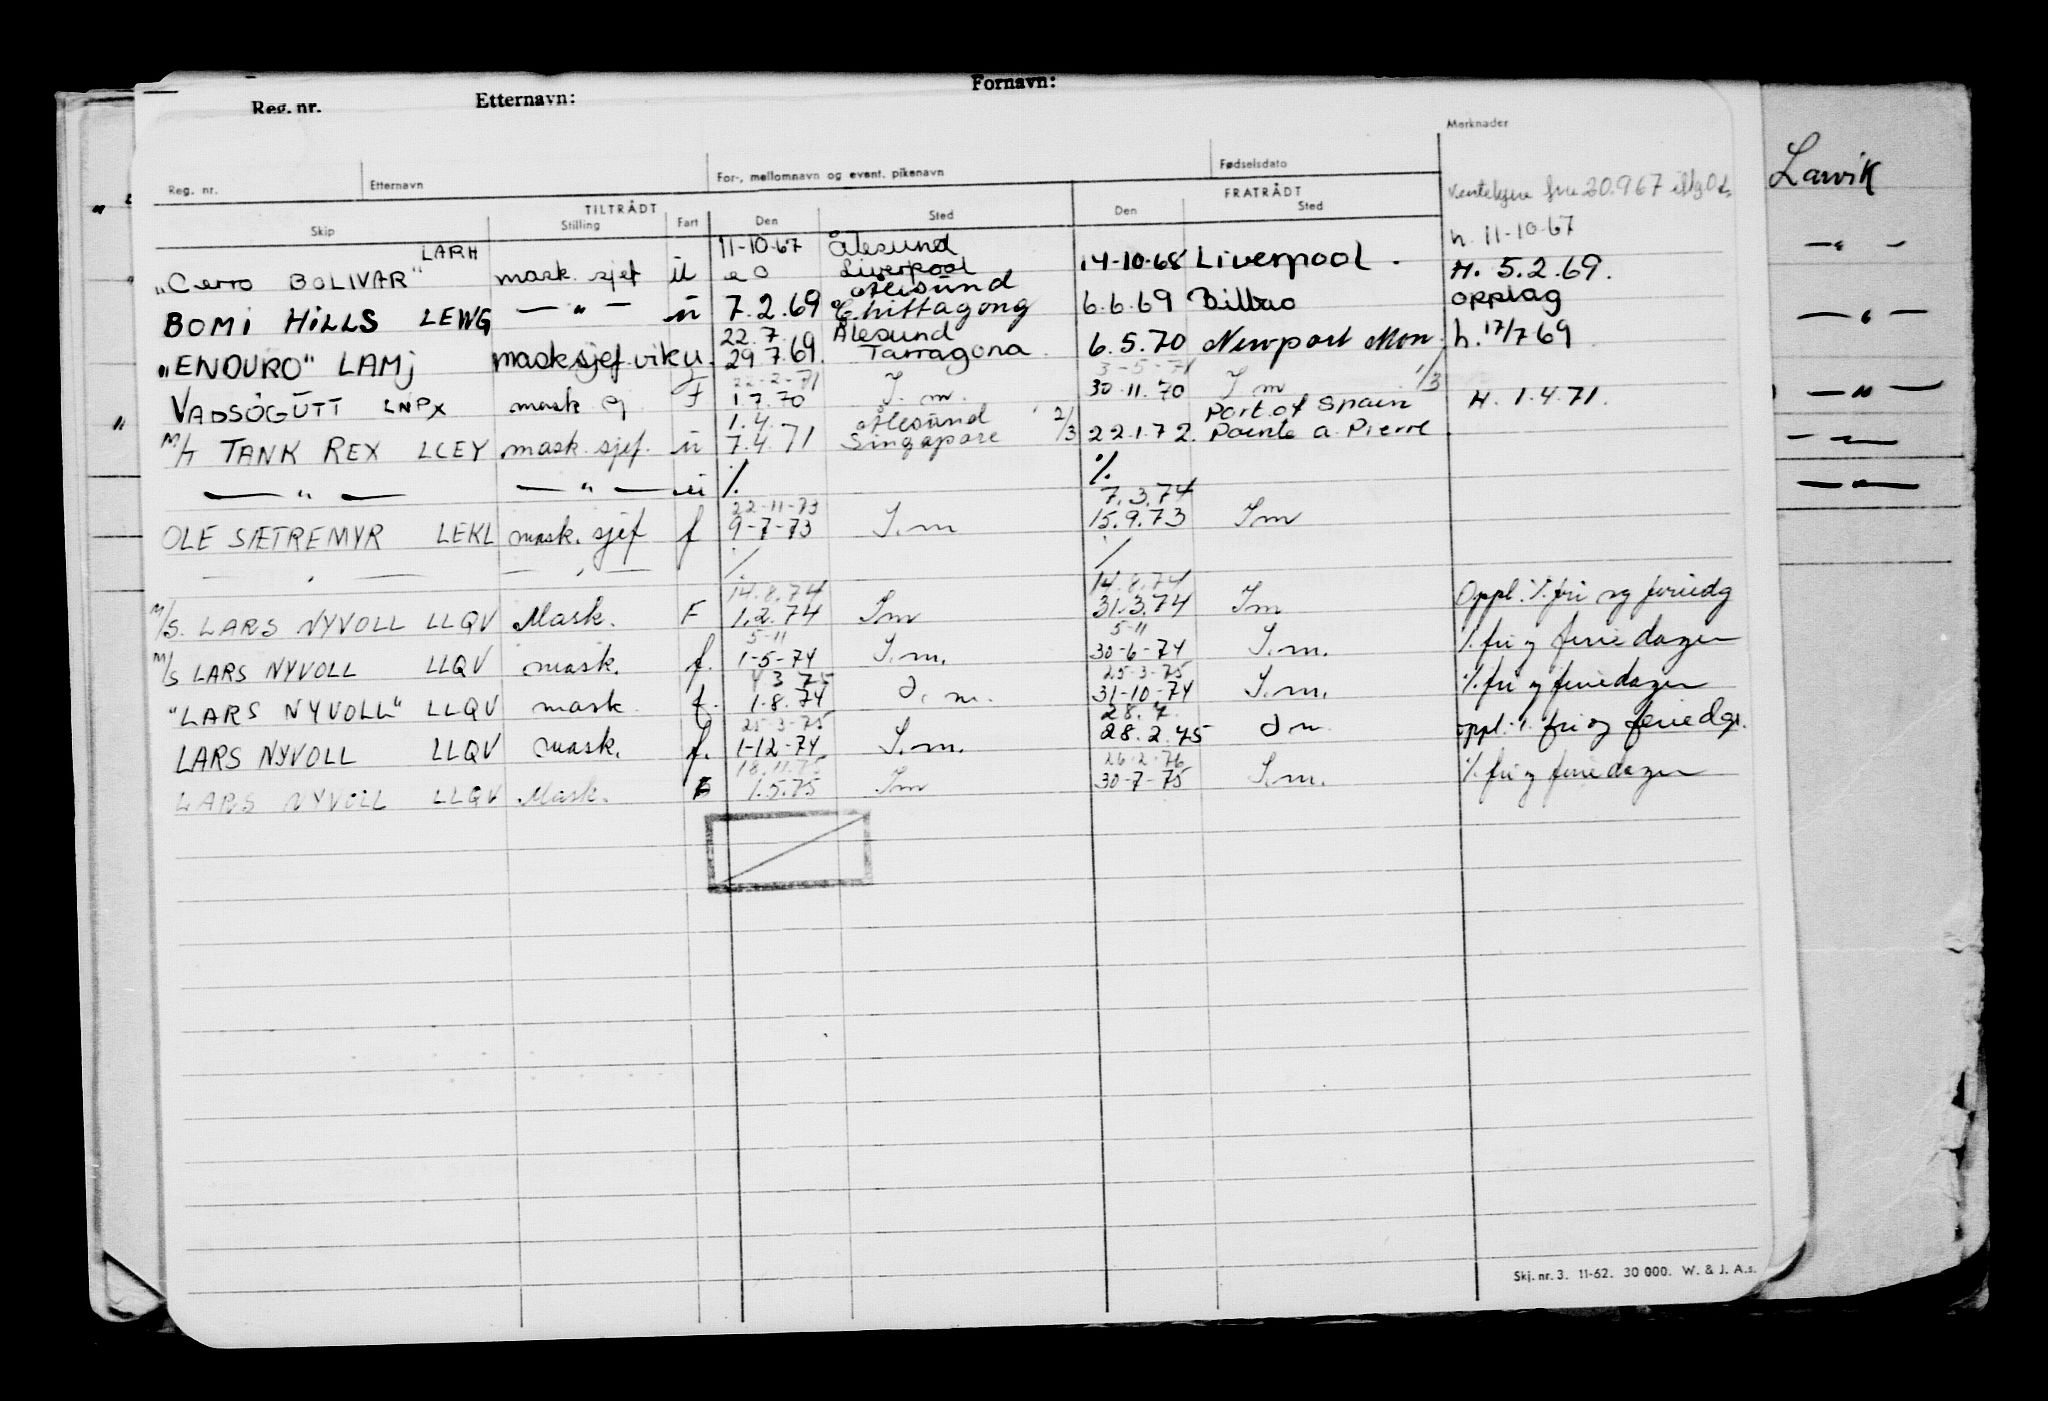 Reg. nr. Etternavn: Fornavn:
Merknader
Reg. nr. Etternavn For-, mellomnavn og event. pikenavn Fødselsdato
Larvik
TILTRÅDT FRATRÅDT
20.9 67
Skip Stilling Fart Den Sted Den Sted
LARH 11-10-67 Ålesund h. 11-10-67
"Cerro BOLIVAR" mask. sjef u Liverpool 14-10-68 Liverpool . H. 5.2.69.
Ålesund
BOMI HILLS LEWG — " — u 7.2.69 Chittagong 6.6.69 Bilbao opplag
22.7. Ålesund
"ENDURO" LAMJ mask sjef vik u. 29.7.69. Tarragona . 6.5.70 Newport Mon. h. 17/7 69
22-2-71 3-5-71
VADSÖGUTT LNPX mask F 1.7.70 I. m. 30.11.70 I m 1/3 H. 1.4.71.
1.4. Ålesund 2/3 Port of Spain
M/T TANK REX LCEY mask. sjef. u 7.4.71 Singapore 22.1.72. Pointe a. Pierre.
— " — — " — u % %
22-11-73 7.3.74
OLE SÆTREMYR LEKL mask. sjef f 9-7-73 I. m 15.9.73 I m
— " — — " — % %
14.8.74 14.8.74
M/S. LARS NYVOLL LLQV Mask. F 1.2.74 I m 31.3.74 I m Oppl. %. fri og feriedg
5-11 5-11
M/S LARS NYVOLL LLQV mask. f. 1-5-74 I. m. 30-6-74 I. m. %. fri og feriedager
4 3 75 25-3-75
"LARS NYVOLL" LLQV mask. f. 1.8.74 I. m. 31-10-74 I. m. %. fri og feriedager
25-3-75 28.7.
LARS NYVOLL LLQV mask. f. 1-12-74 I. m. 28.2.75 I m. oppl. %. fri og feriedgr.
18.11.75 26.2.76
LARS NYVOLL LLQV Mask. F 1.5.75 I m 30-7-75 I. m. %. fri og feriedager
Skj. nr. 3. 11-62. 30 000. W. & J. A.s.